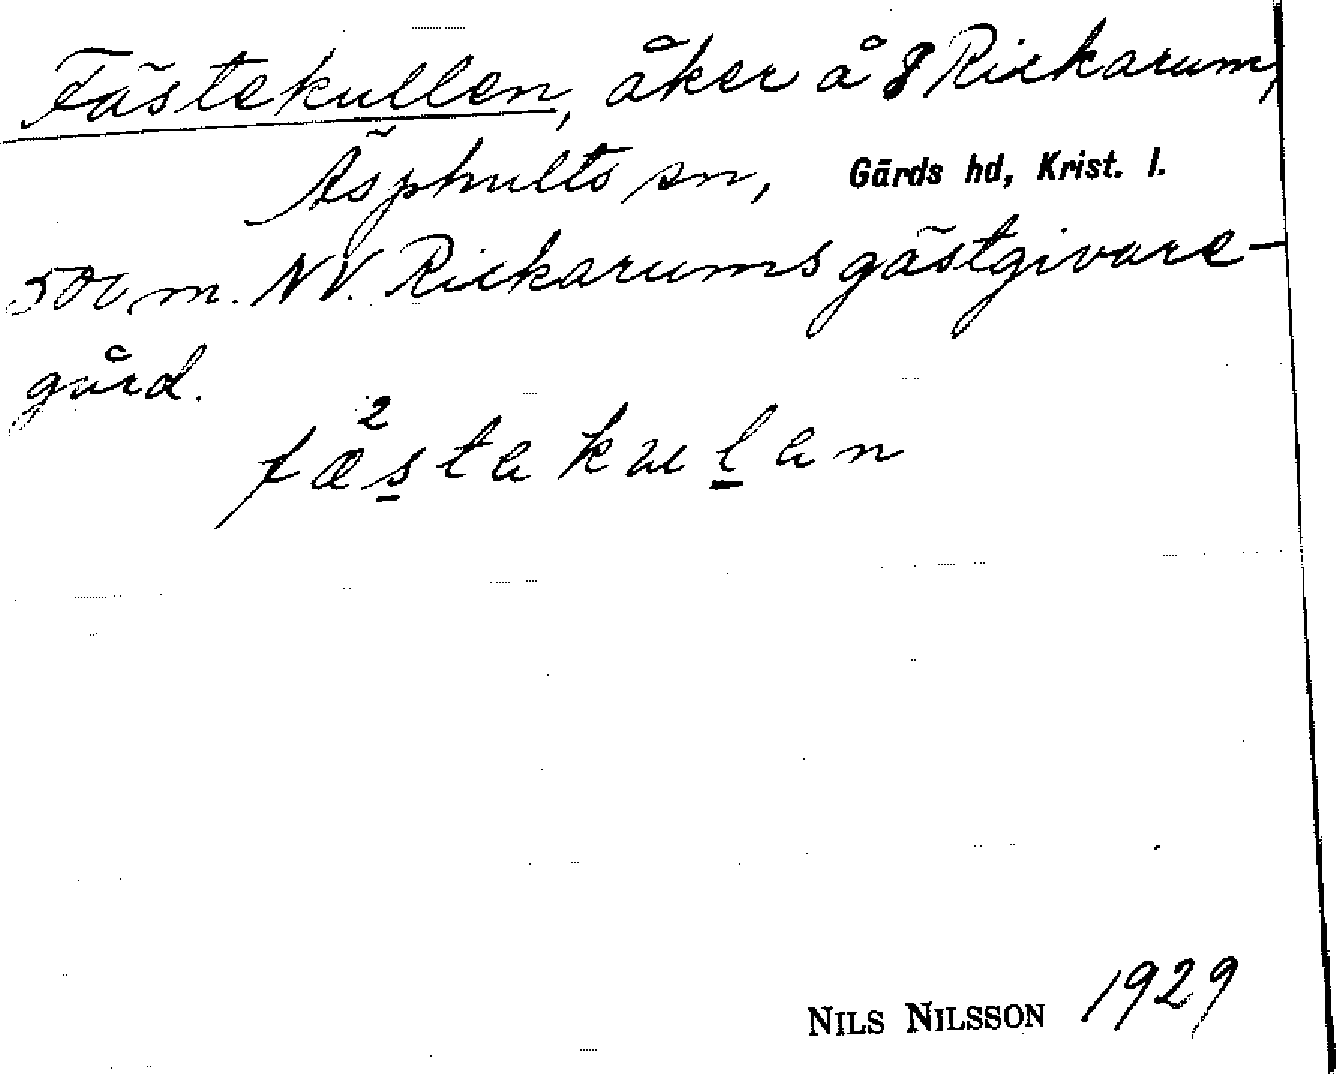 Fästekullen, åker å 8 Rickarum,
Äsphults sn, Gärds hd, Krist. l.
500 m. NV. Rickarums gästgivare-
gård.
fæ²stakulan
NILS NILSSON 1929